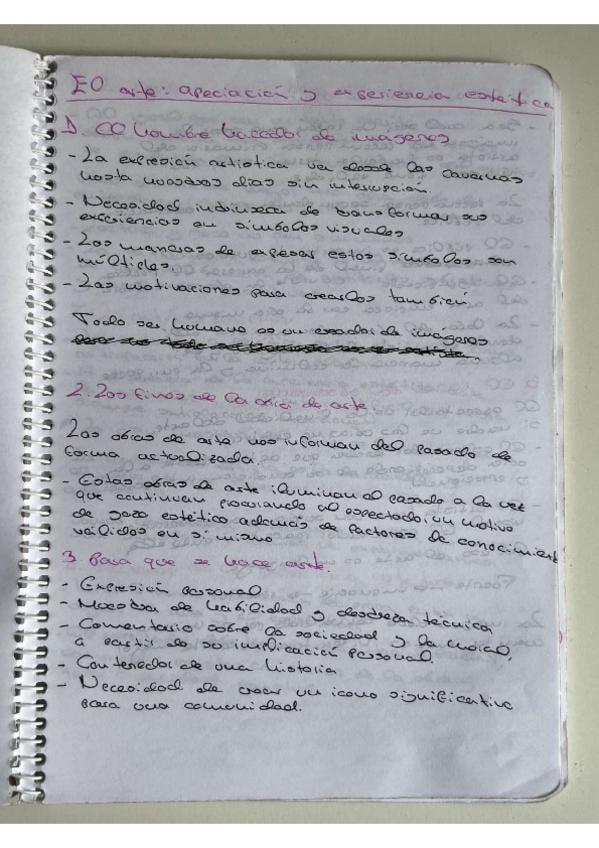 El arte: apeciación y experiencia estética
1) El hombre hacedor de imágenes
- La expresión artística va desde las cavernas
hasta nuestros dias sin interrupción.
- Necesidad intrínseca de transformar sus
experiencias en símbolos visuales
- Las maneras de expresar estos símbolos son
múltiples
- Las motivaciones para crearlos también.
Todo ser humano es un creador de imágenes
2. Los fines de la obra de arte.
Las obras de arte nos informan del pasado de
forma actualizada.
- Estas obras de arte iluminan al pasado a la vez
que continuan procurando al espectador un motivo
de gozo estético además de factores de conocimiento
válidos en si mismo
3 Para que se hace arte.
- Expresión personal
- Muestra de habilidad y destreza técnica
- Comentario sobre la sociedad y la moral,
a partir de su implicación personal
- Contenedor de una historia
- Necesidad de crear un icono significativo
para una comunidad.